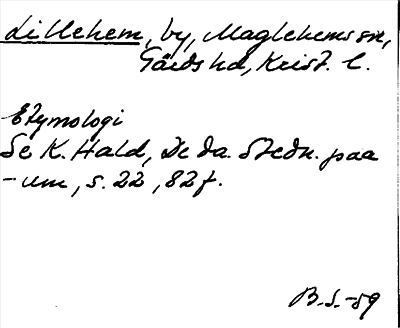 Lillehem, by, Maglehems sn,
Gärds hd, Krist. l.
Etymologi
Se K. Hald, De da. Stedn. paa
-um, s. 22, 82f.
B.S.-59